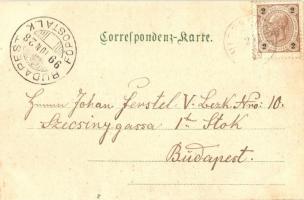 Correspondenz-Karte.
BUDAPEST
FŐPOSTA
99 JUN 28
2 2
Herrn Johan Ferstel V. Bezk. Nro: 10.
Szecsinygassa 1te Stok
Budapest.